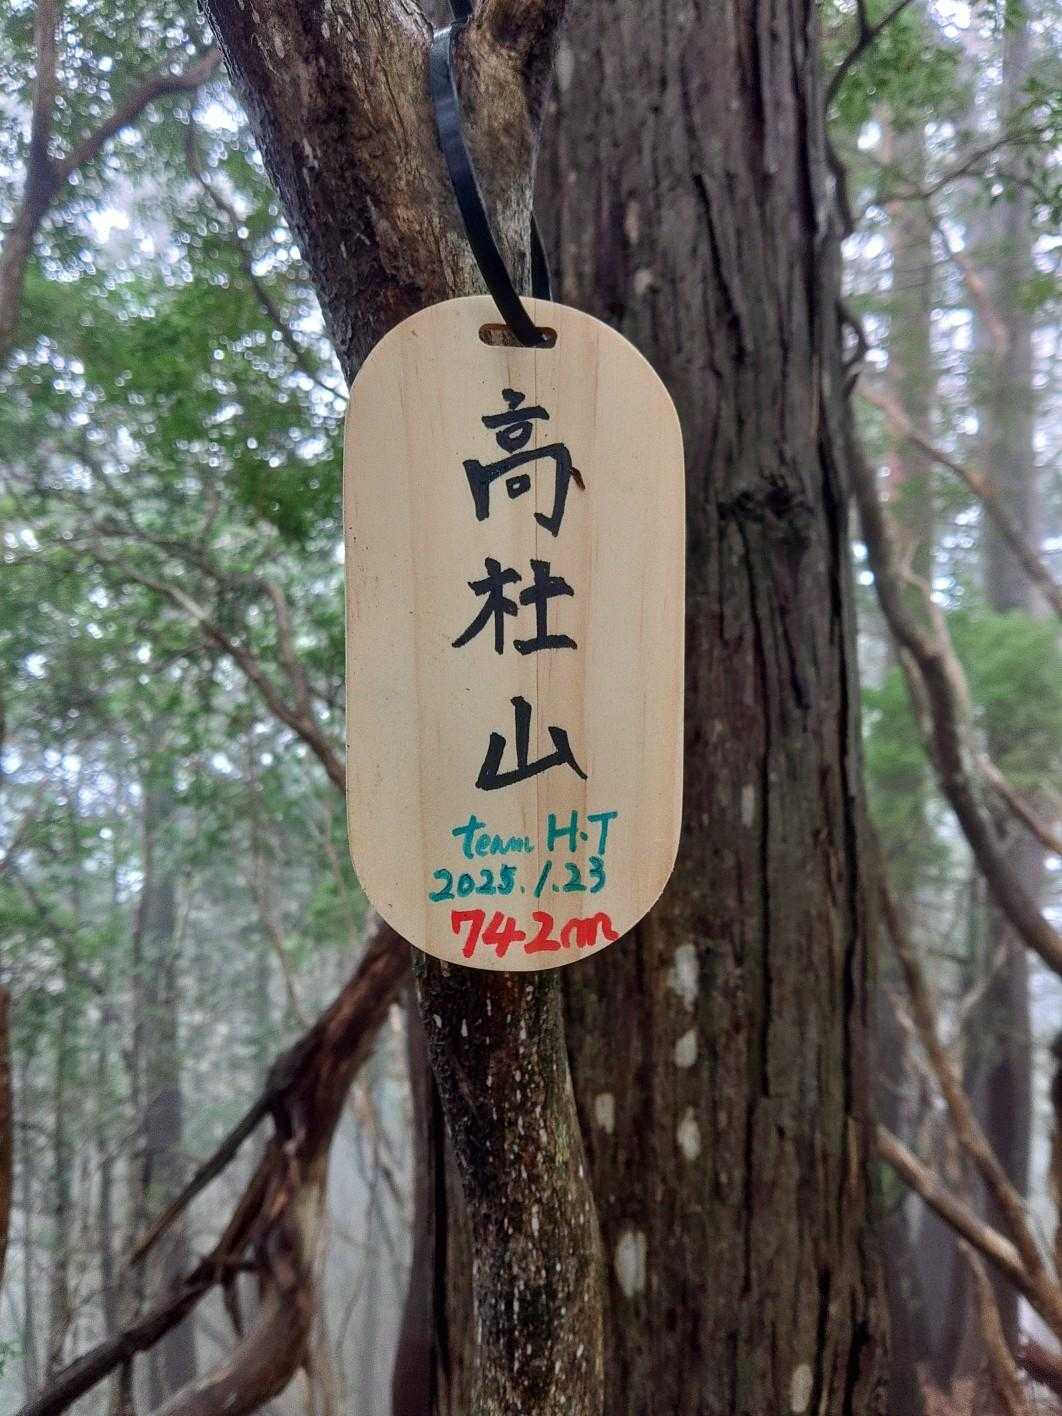 高杜山
team H.T
2025.1.23
742m